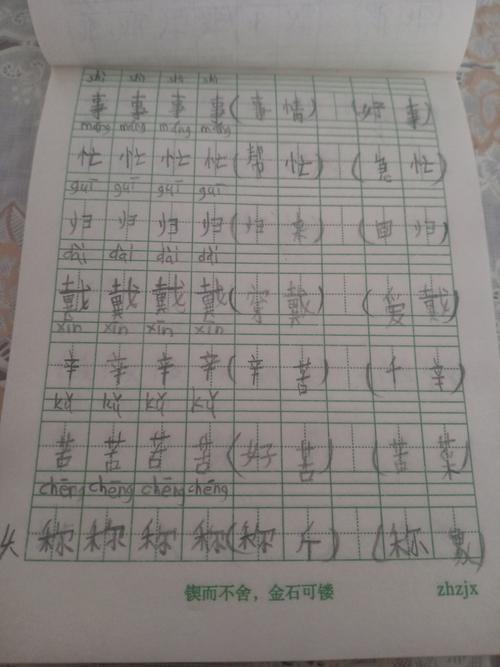 shì shì shì shì
事 事 事 事 (事情) (好事)
máng máng máng máng
忙 忙 忙 忙 (帮忙) (急忙)
guī guī guī guī
归 归 归 归 (归来) (回归)
dài dài dài dài
戴 戴 戴 戴 (穿戴) (爱戴)
xīn xīn xīn xīn
辛 辛 辛 辛 (辛苦) (千辛)
kǔ kǔ kǔ kǔ
苦 苦 苦 苦 (好苦) (苦菜)
chēng chēng chēng chēng
称 称 称 称 (称斤) (称象)
锲而不舍，金石可镂
zhzjx